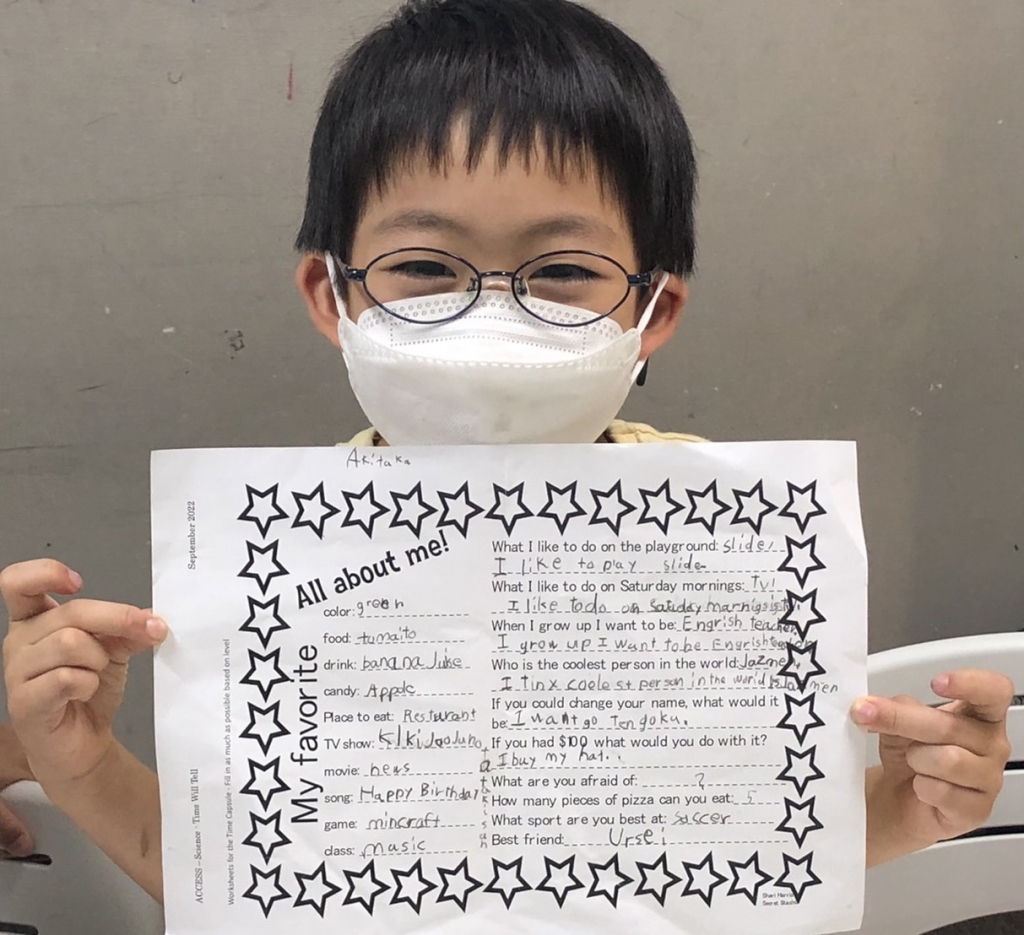 Akitaka
September 2022
ACCESS – Science - Time Will Tell
Worksheets for the Time Capsule - Fill in as much as possible based on level
All about me!
My favorite
color: green
food: tumaito
drink: banana Juise
candy: Apple
Place to eat: Resturant
TV show:
movie: news
song: Happy Birthday
game: mincraft
class: masic
What I like to do on the playground: slide.
I like to play slide
What I like to do on Saturday mornings: Tv!
I like todo on
When I grow up I want to be: Engrish teacher
I grow up I want to be Engrish
Who is the coolest person in the world: Jazmen.
I tinx coolest person in the world is Jazmen
If you could change your name, what would it
be: I want go Tengoku.
If you had $100 what would you do with it?
I buy my hat.
What are you afraid of: ?
How many pieces of pizza can you eat: 5
What sport are you best at: saccer
Best friend: Ursei